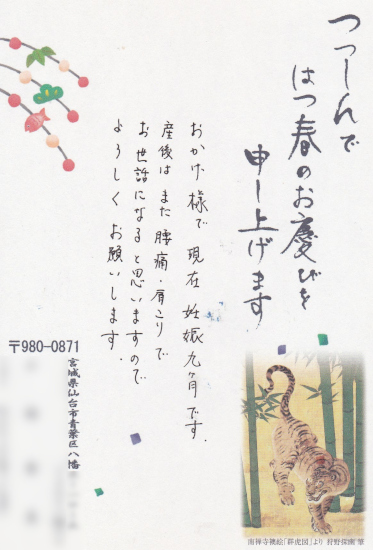 つつしんで
はつ春のお慶びを
申し上げます
おかげ様で 現在 妊娠九ヶ月です.
産後は また 腰痛・肩こりで
お世話になると思いますので
よろしく お願いします.
〒980-0871
宮城県仙台市青葉区八幡
南禅寺襖絵「群虎図」より 狩野探幽 筆